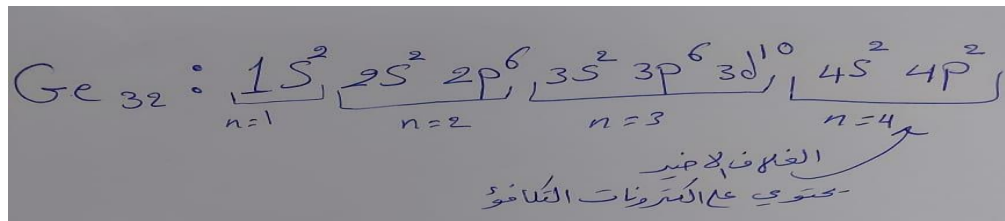 Ge₃₂ : 1S² 2S² 2p⁶ 3S² 3p⁶ 3d¹⁰ 4S² 4p²
n=1 n=2 n=3 n=4
الغلاف الاخير
يحتوي على الكترونات التكافؤ